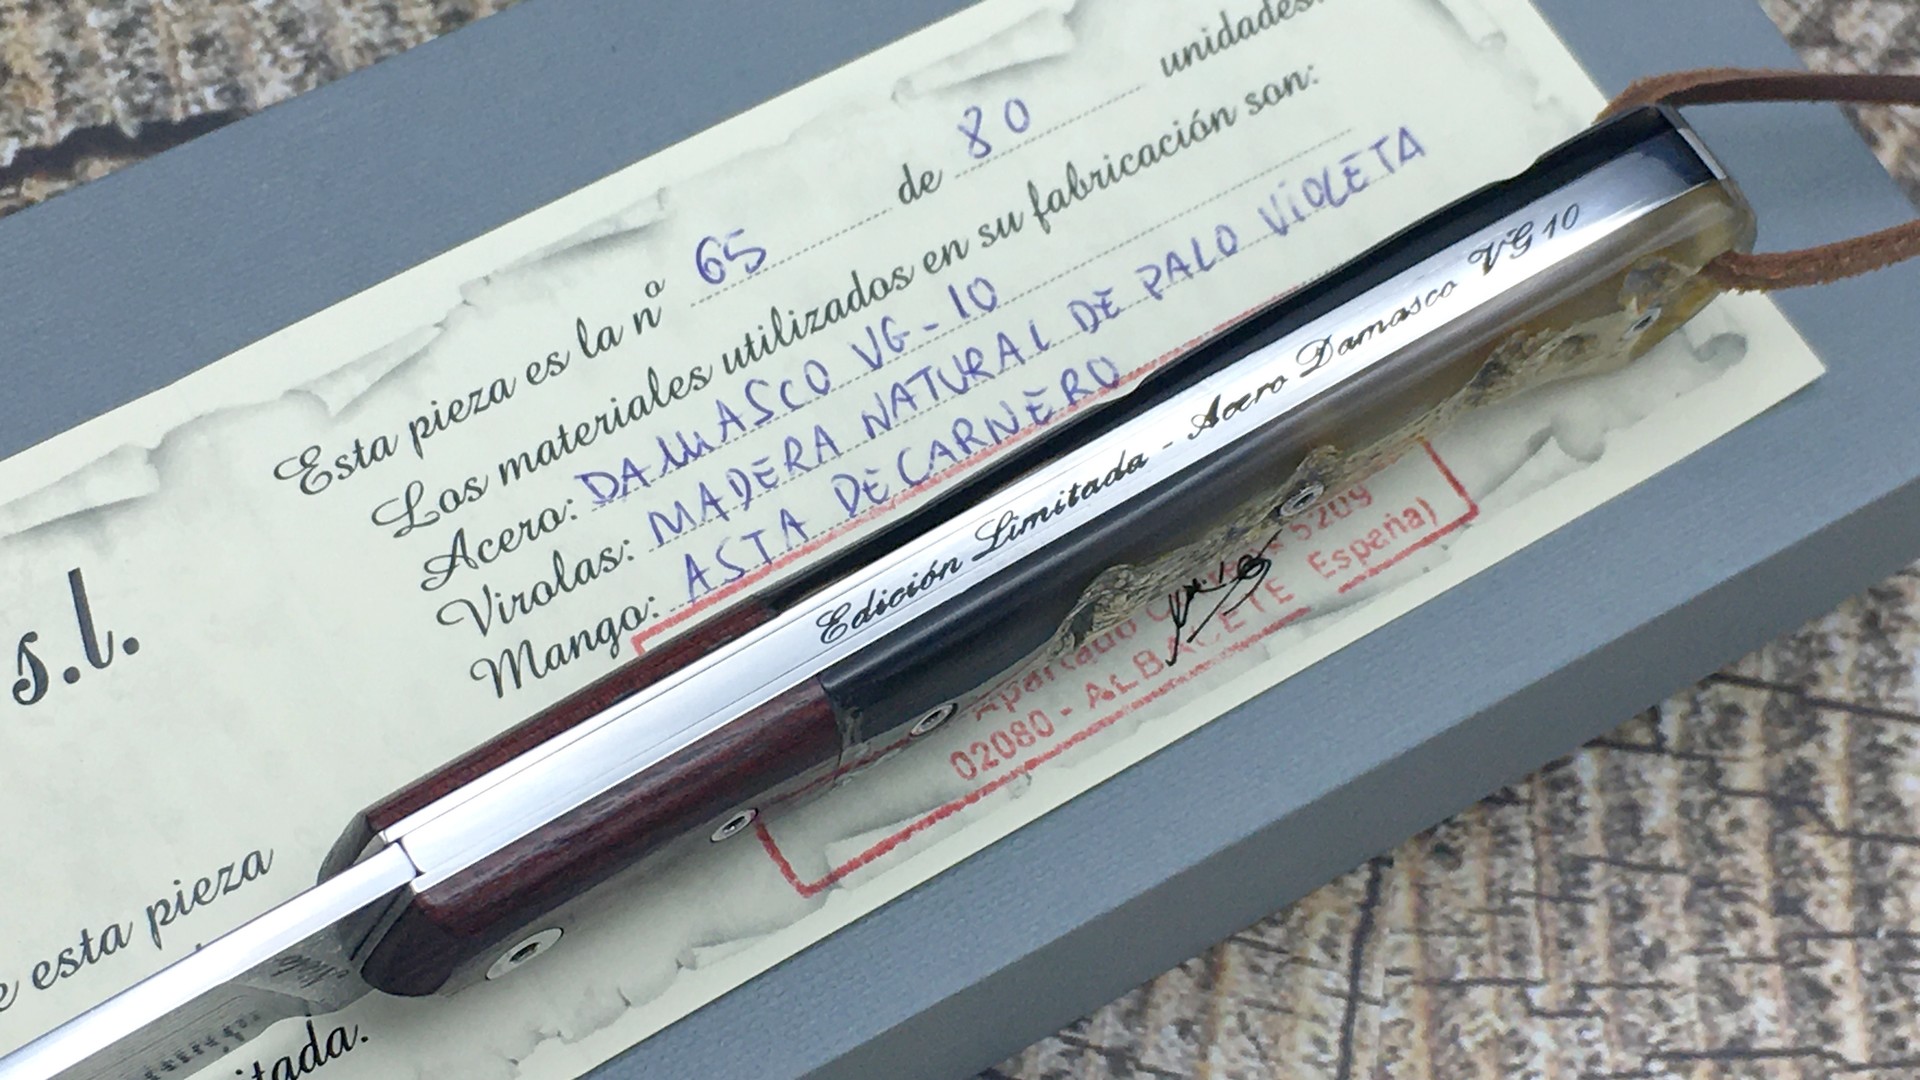 Esta pieza es la nº 65 de 80 unidades.
Los materiales utilizados en su fabricación son:
Acero: DAMASCO VG-10
Virolas: MADERA NATURAL DE PALO VIOLETA
Mango: ASTA DE CARNERO
s.l.
Edición Limitada - Acero Damasco VG10
Apartado 5209
02080 - ALBACETE España)
esta pieza
itada.